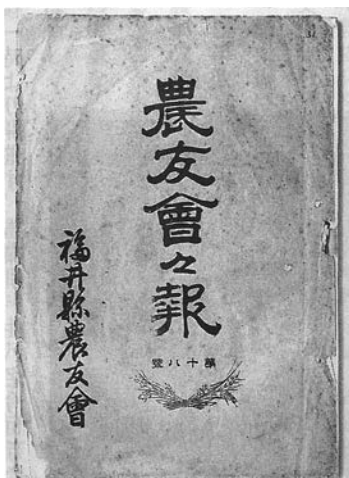 農友會々報
第十八號
福井縣農友會